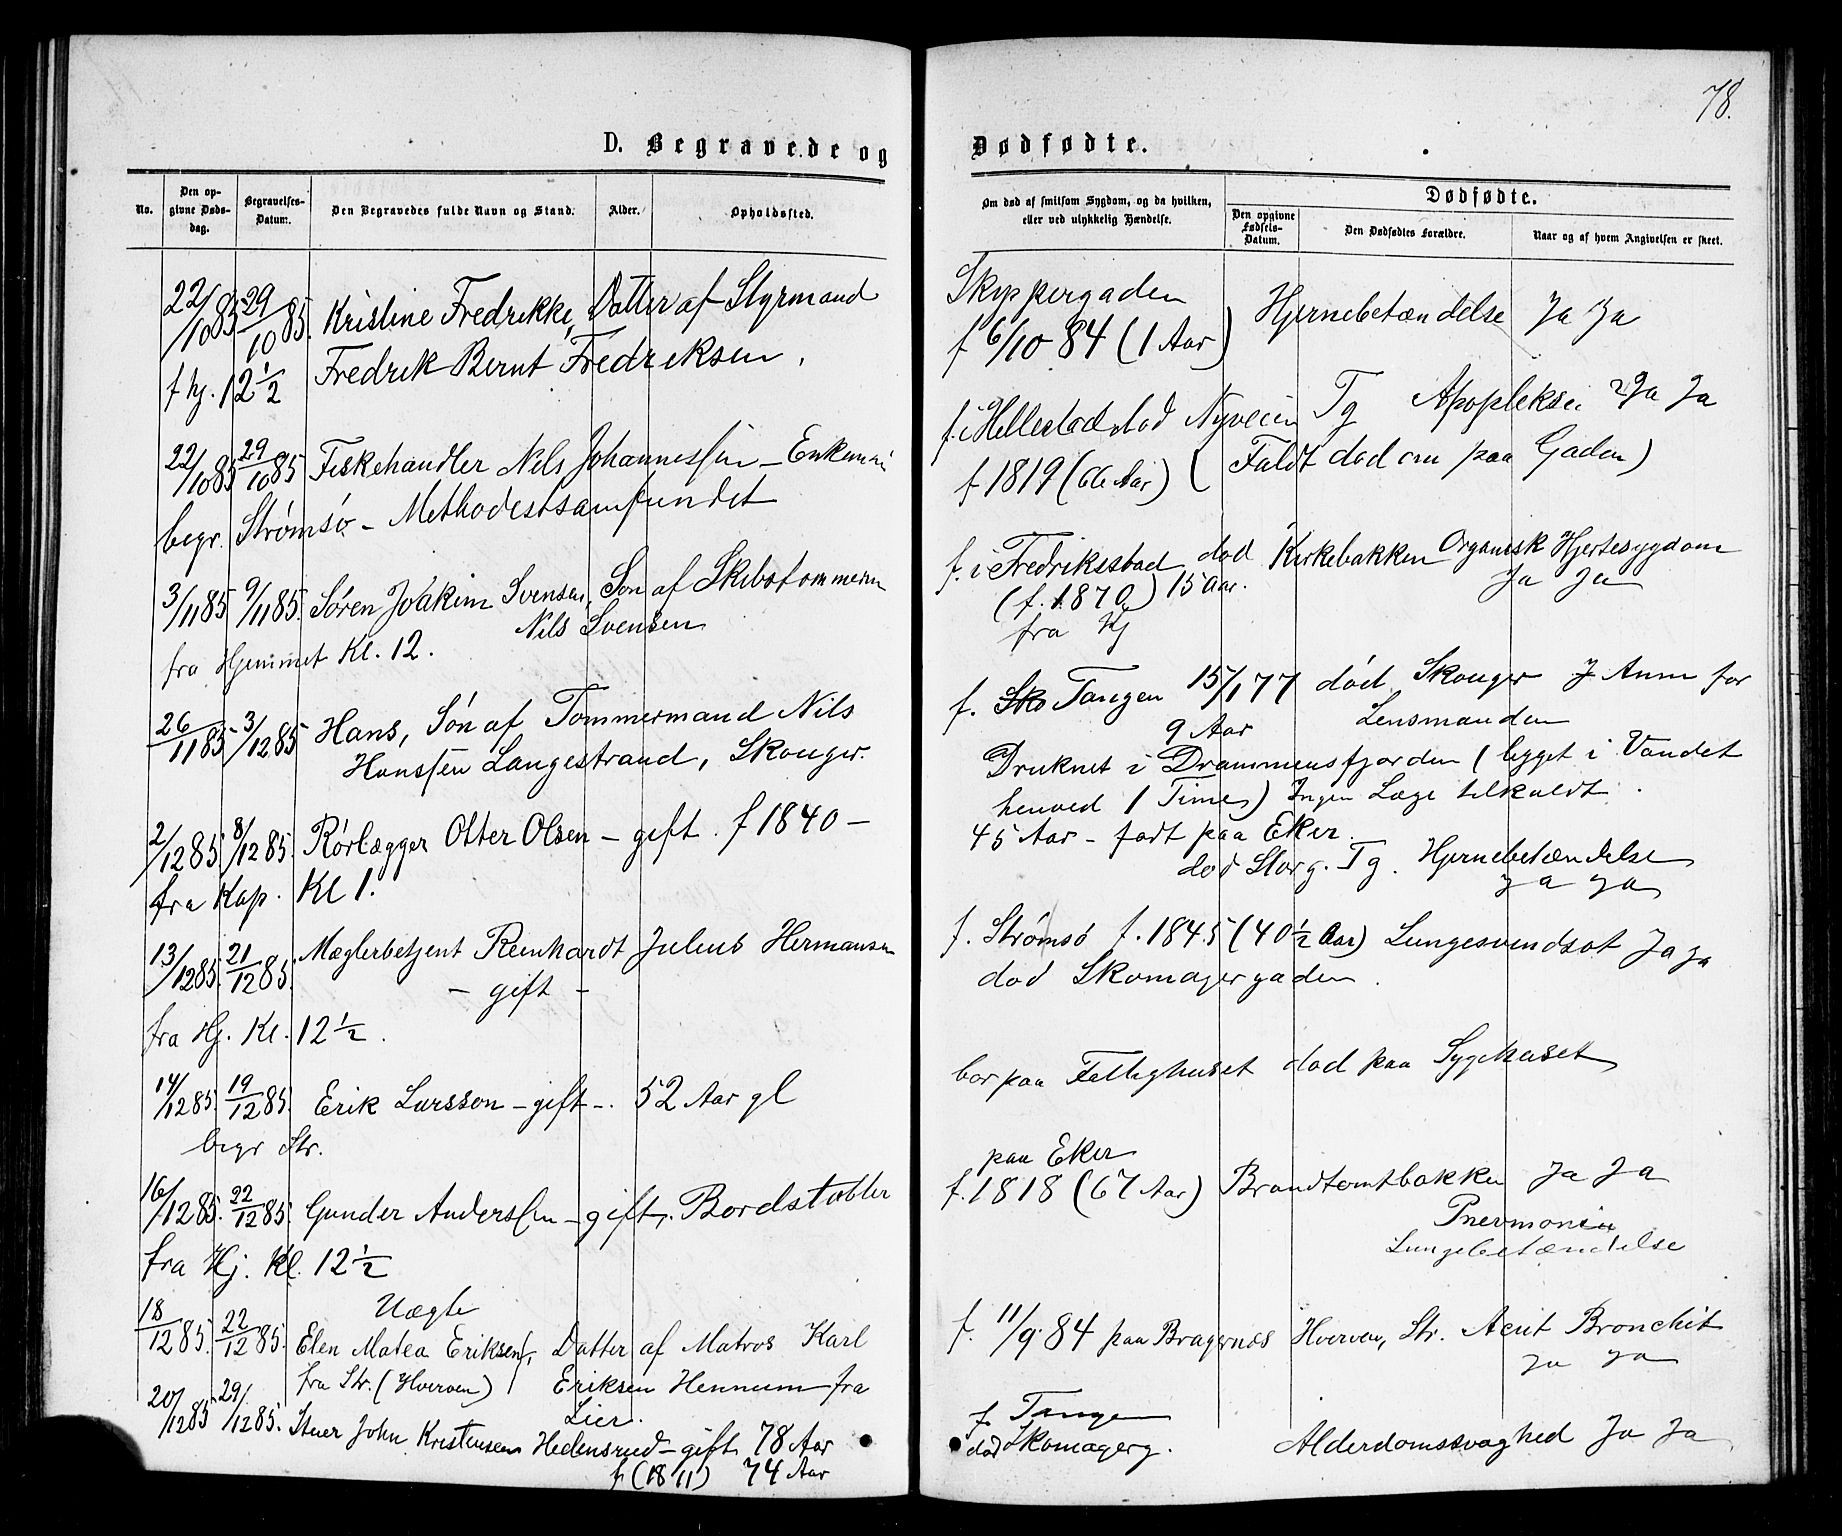 78.
D. Begravede og Dødfødte.
No.
Den opgivne Dødsdag.
Begravelses-Datum.
Den Begravedes fulde Navn og Stand.
Alder.
Opholdssted.
Om død af smitsom Sygdom, og da hvilken, eller ved ulykkelig Hændelse.
Dødfødte.
Den opgivne Fødsels-Datum.
Den Dødfødtes Forældre.
Naar og af hvem Angivelsen er skeet.
22/10 85 29/10 85. Kristine Fredrikke, Datter af Styrmand
f hj. 12 1/2 Fredrik Bernt Fredriksen.
Skippergaden Hjernebetændelse Ja Ja
f 6/10 84 (1 Aar)
22/10 85 29/10 85 Fiskehandler Nils Johannessen – Enkemand
begr. Strømsø – Methodestsamfundet
f. i Hellestad død Nyveien Tg Apopleksi Ja Ja
f 1819 (66 Aar) (Faldt død om paa Gaden)
3/11 85 9/11 85. Søren Joakim Svensen, Søn af Skibstømmerm
Nils Svensen
fra Hjemmet Kl. 12.
f. i Fredriksstad død Kirkebakken Organisk Hjertesygdom
(f. 1870) 15 Aar. Ja Ja
fra Hj
26/11 85 3/12 85 Hans, Søn af Tømmermand Nils
Hanssen Langestrand, Skouger.
f. Sko Tangen 15/1 77 død Skouger J Anm for
9 Aar Lensmanden
Druknet i Drammensfjorden (ligget i Vandet
henved 1 Time) Ingen Læge tilkaldt.
2/12 85 8/12 85. Rørlægger Otter Olsen – gift. f 1840 –
fra Kap. Kl 1.
45 Aar – født paa Eker.
død Storg. Tg. Hjernebetændelse
Ja Ja
13/12 85. 21/12 85. Mæglerbetjent Reinhardt Julius Hermansen
– gift –
fra Hj. Kl. 12 1/2.
f. Strømsø f. 1845 (40 1/2 Aar) Lungesvindsot Ja Ja
død Skomagergaden.
14/12 85. 19/12 85. Erik Larsson – gift –. 52 Aar gl
begr Str.
bor paa Fattighuset død paa Sygehuset
16/12 85. 22/12 85. Gunder Anderssen – gift. Bordstabler
fra Hj. Kl. 12 1/2
paa Eker
f. 1818 (67 Aar) Brandtomtbakken Ja Ja
Pnevmonia
Lungebetændelse
Uægte
18/12 85. 22/12 85. Elen Matea Eriksen, Datter af Matros Karl
fra Str. (Hverven) Eriksen Hennum fra
Lier.
f. 11/9 84 paa Bragernes Hverven, Str. Acut Bronchit
Ja Ja
20/12 85 29/12 85. Stuer John Kristensen Hedensrud – gift 78 Aar
f (1811) 74 Aar
f. Tangen
død Skomagerg. Alderdomssvaghed Ja Ja